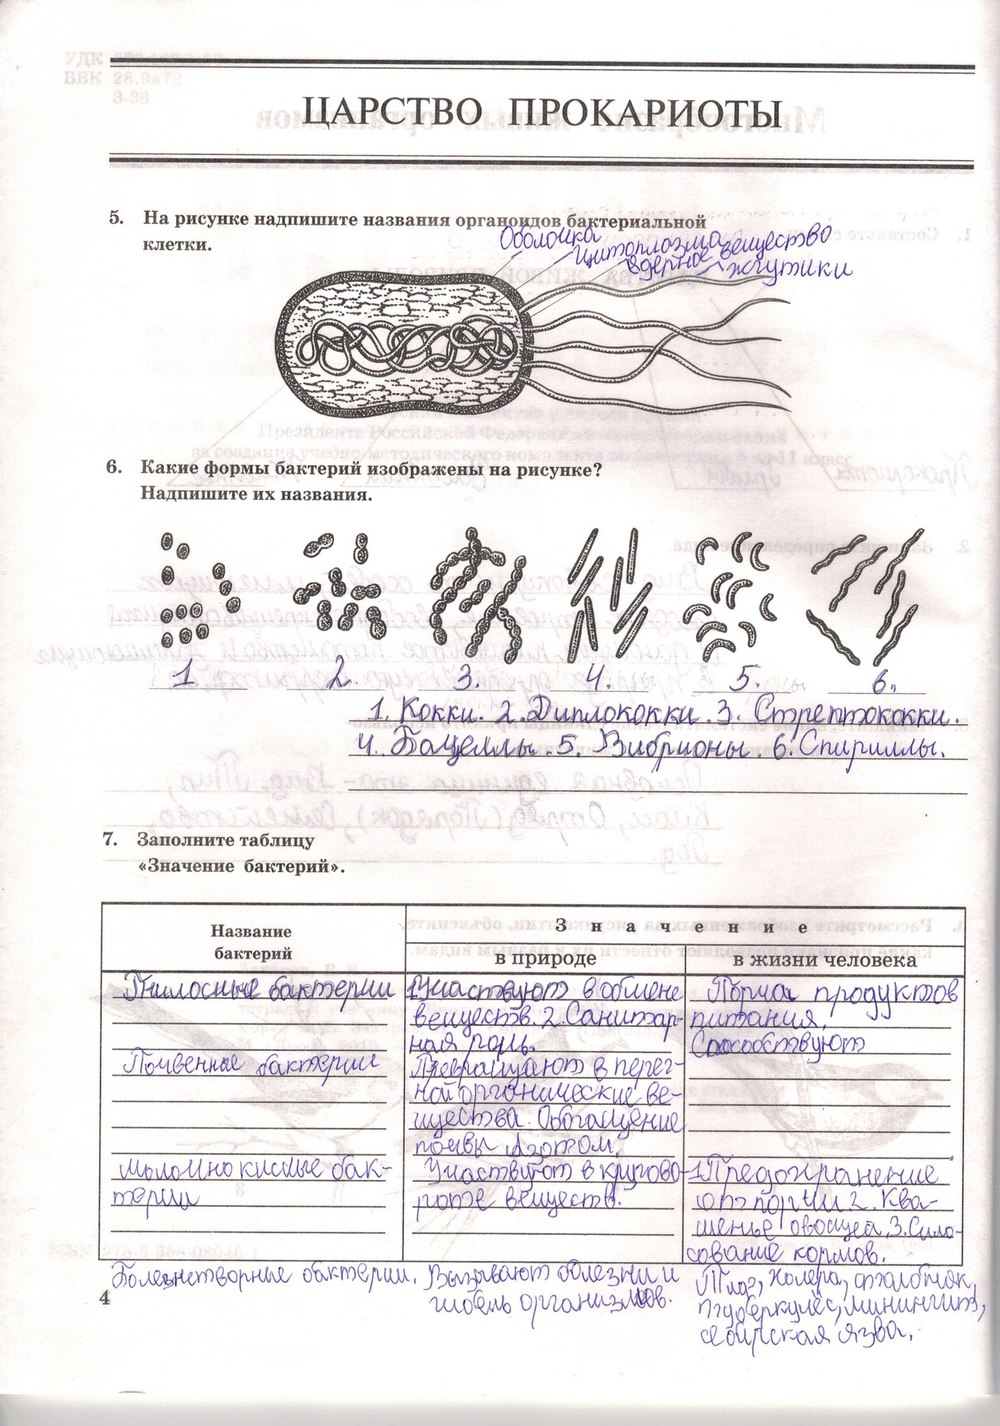 ЦАРСТВО ПРОКАРИОТЫ
5. На рисунке надпишите названия органоидов бактериальной
клетки.
Оболочка
Цитоплазма
ядерное вещество
жгутики
6. Какие формы бактерий изображены на рисунке?
Надпишите их названия.
1. 2. 3. 4. 5. 6.
1. Кокки. 2. Диплококки. 3. Стрептококки.
4. Бацеллы. 5. Вибрионы. 6. Спириллы.
7. Заполните таблицу
«Значение бактерий».
Название
бактерий
Значение
в природе
в жизни человека
Гнилосные бактерии
1. Участвуют в обмене
веществ. 2. Санитар-
ная роль.
Порча продуктов
питания.
Способствуют
Почвенные бактерии
Превращают в перег-
ной органические ве-
щества. Обогащение
почвы азотом.
молочнокислые бак-
терии
Участвуют в кругово-
роте веществ.
1. Предохранение
от порчи 2. Ква-
шенье овощей 3. Сило-
сование кормов.
Болезнетворные бактерии.
Вызывают болезни и
гибель организмов.
Тиф, холера, столбняк,
туберкулёс, минингит,
сибирская язва.
4